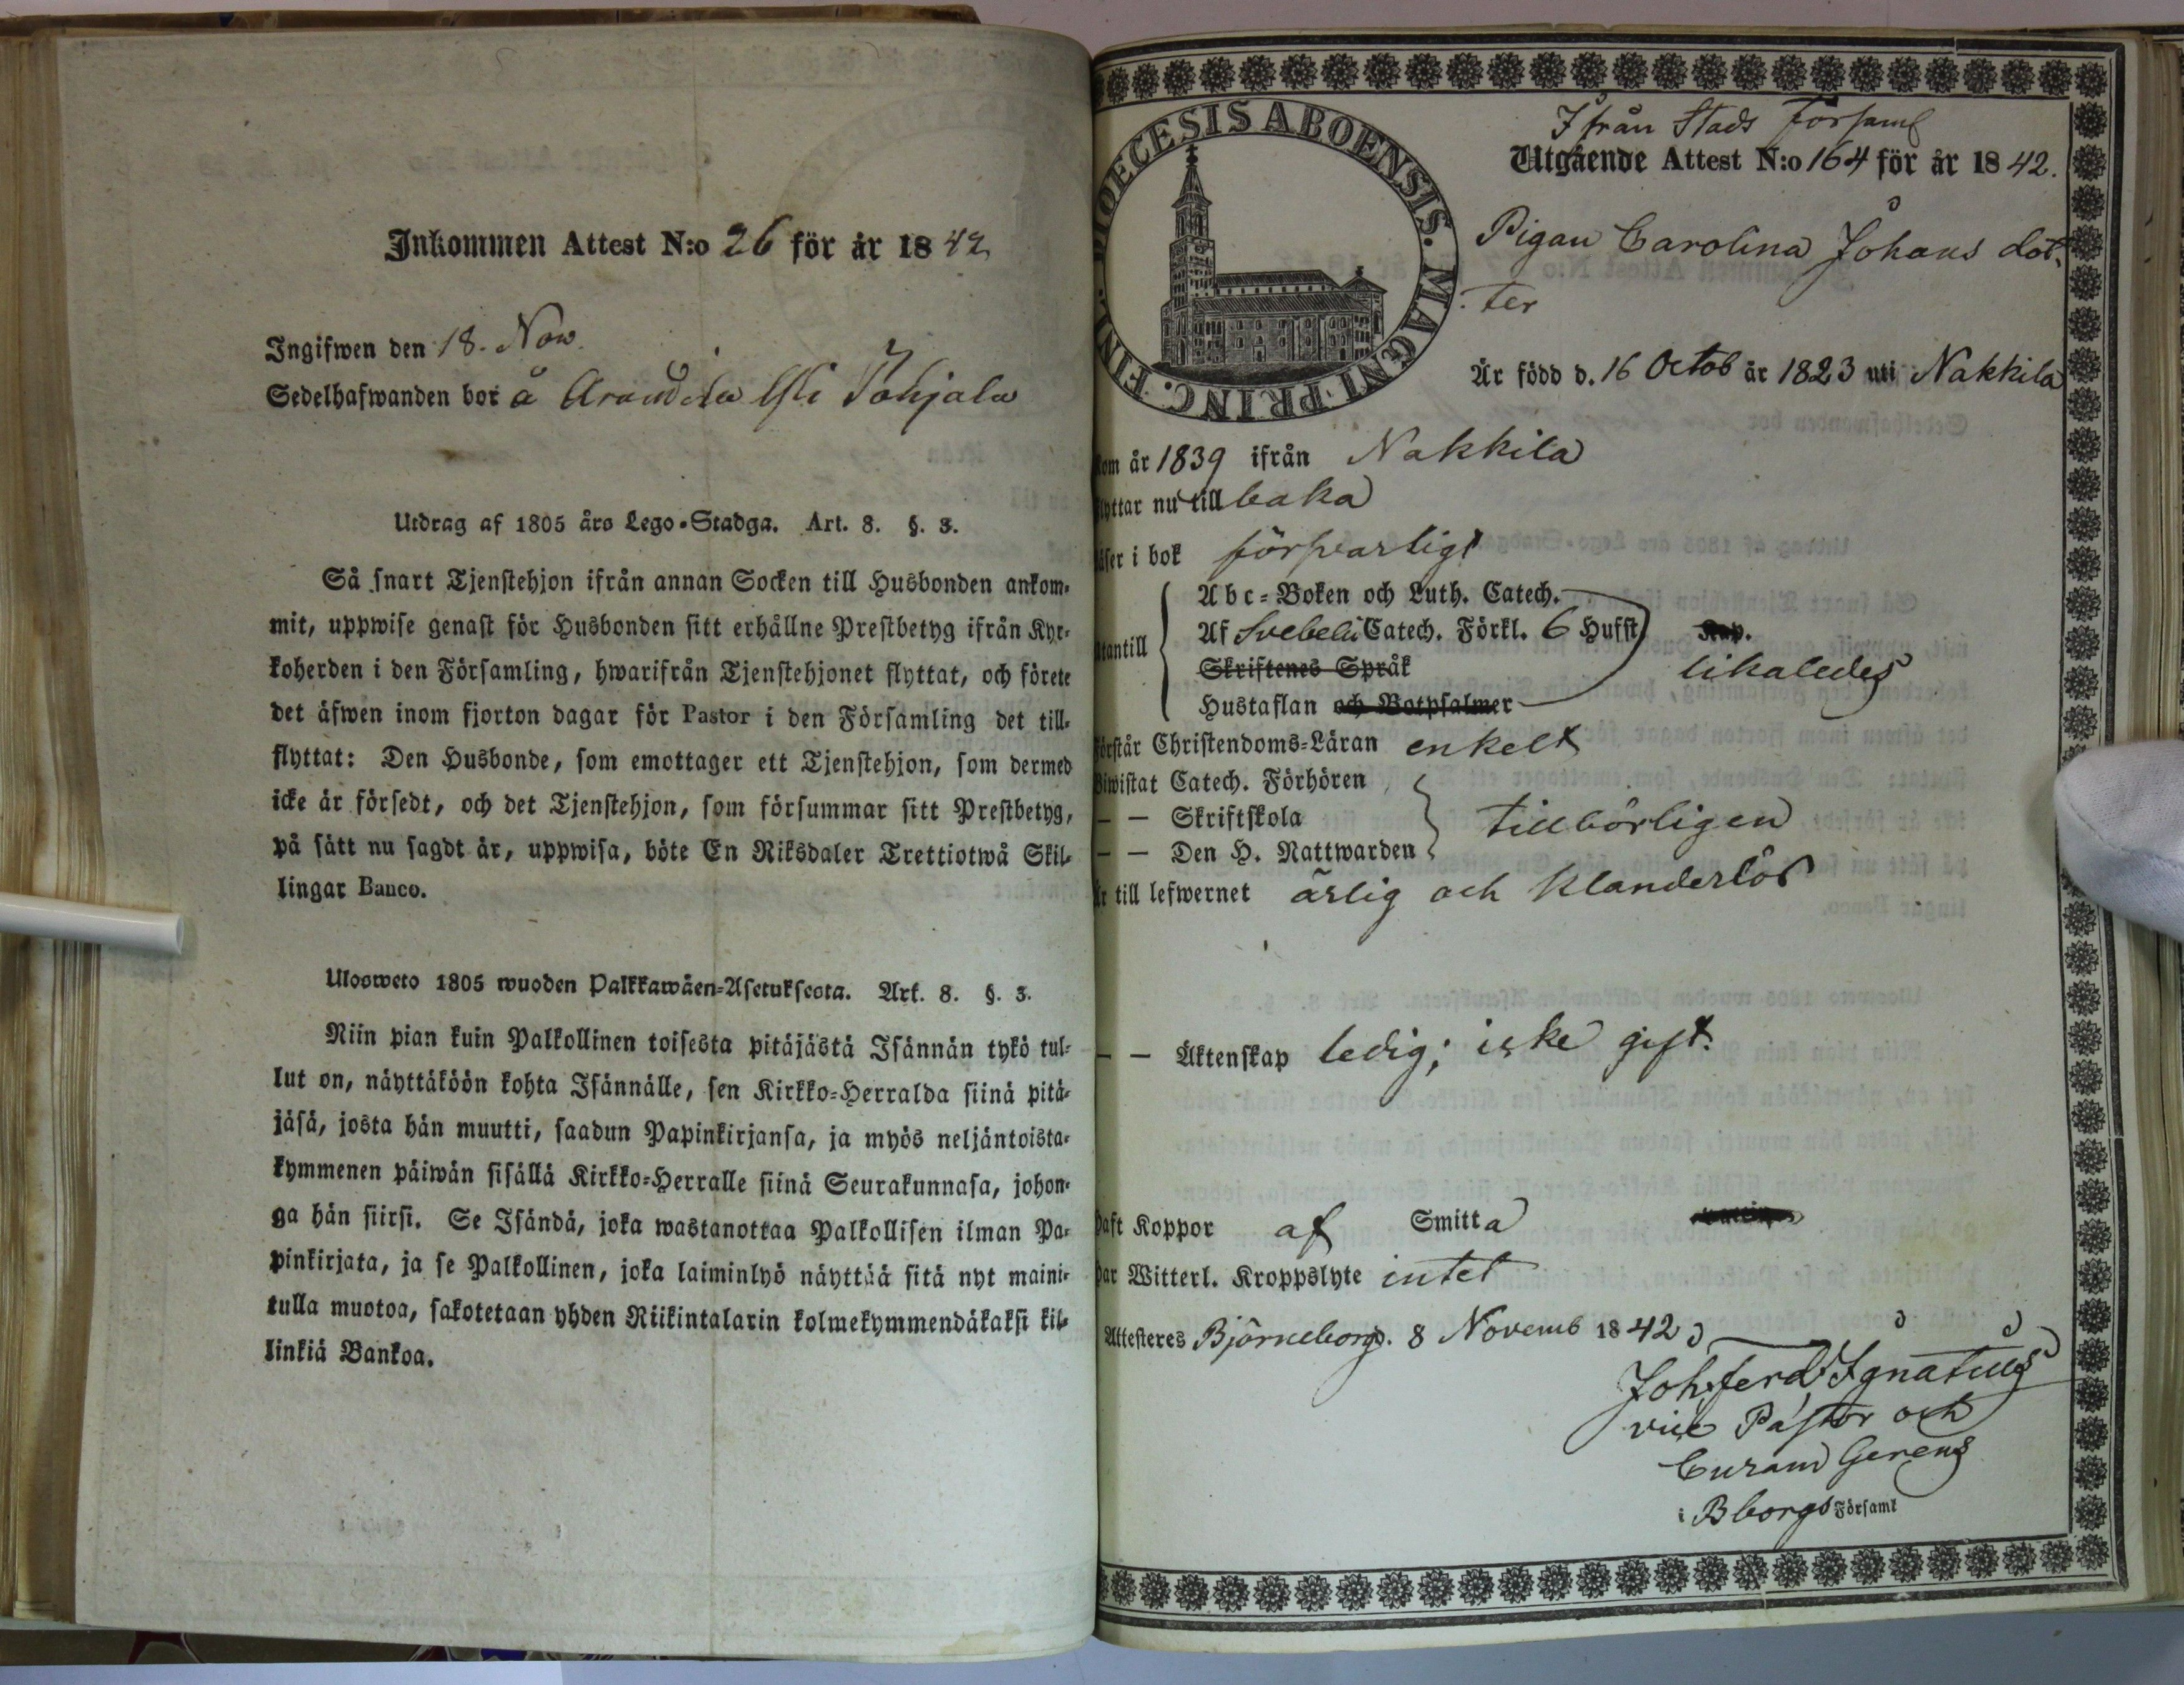 Inkommen Attest N:o 26 för år 1842
Ingifwen den 18. Nov.
Sedelhafwanden bor å Pohjala
Utdrag af 1805 års Lego-Stadga. Art. 8. §. 3.
Så snart Tjenstehjon ifrån annan Socken till Husbonden ankom-
mit, uppwise genast för Husbonden sitt erhållne Prestbetyg ifrån Kyr-
koherden i den Församling, hwarifrån Tjenstehjonet flyttat, och förete
det äfwen inom fjorton dagar för Pastor i den Församling det till-
flyttat: Den Husbonde, som emottager ett Tjenstehjon, som dermed
icke är försedt, och det Tjenstehjon, som försummar sitt Prestbetyg,
på sätt nu sagdt är, uppwisa, böte En Riksdaler Trettiotwå Skil-
lingar Banco.
Ulosweto 1805 wuoden Palkkawäen-Asetuksesta. Art. 8. §. 3.
Niin pian kuin Palkollinen toisesta pitäjästä Isännän tykö tul-
lut on, näyttäköön kohta Isännälle, sen Kirkko-Herralda siinä pitä-
jäsä, josta hän muutti, saadun Papinkirjansa, ja myös neljäntoista-
kymmenen päiwän sisällä Kirkko-Herralle siinä Seurakunnasa, johon-
ga hän siirsi. Se Isändä, joka wastanottaa Palkollisen ilman Pa-
pinkirjata, ja se Palkollinen, joka laiminlyö näyttää sitä nyt maini-
tulla muotoa, sakotetaan yhden Riikintalarin kolmekymmendäkaksi kil-
linkiä Bankoa.
DIOECESIS ABOENSIS. MAGNI PRINC. FINL.
Ifrån Stads Församl
Utgående Attest N:o 164 för år 1842.
Pigan Carolina Johans dot-
ter
Är född d. 16 Octob år 1823 uti Nakkila
Kom år 1839 ifrån Nakkila
flyttar nu tillbaka
läser i bok försvarligt
Utantill
Abc-Boken och Luth. Catech.
Af Svebelii Catech. Förkl. 6 Hufst Kap.
Skriftenes Språk
likaledes
Hustaflan och Botpsalmer
Förstår Christendoms-Läran enkelt
Biwistat Catech. Förhören
— — Skriftskola
tillbörligen
— — Den H. Nattwarden
Är till lefwernet ärlig och klanderlös
— — Äktenskap ledig; icke gift.
haft Koppor af Smitta
har Witterl. Kroppslyte intet
Attesteres Björneborg d. 8 Novemb 1842
Joh. Ferd. Ignatius
vice Pastor och
Curam Gerens
i Bborgs Församl